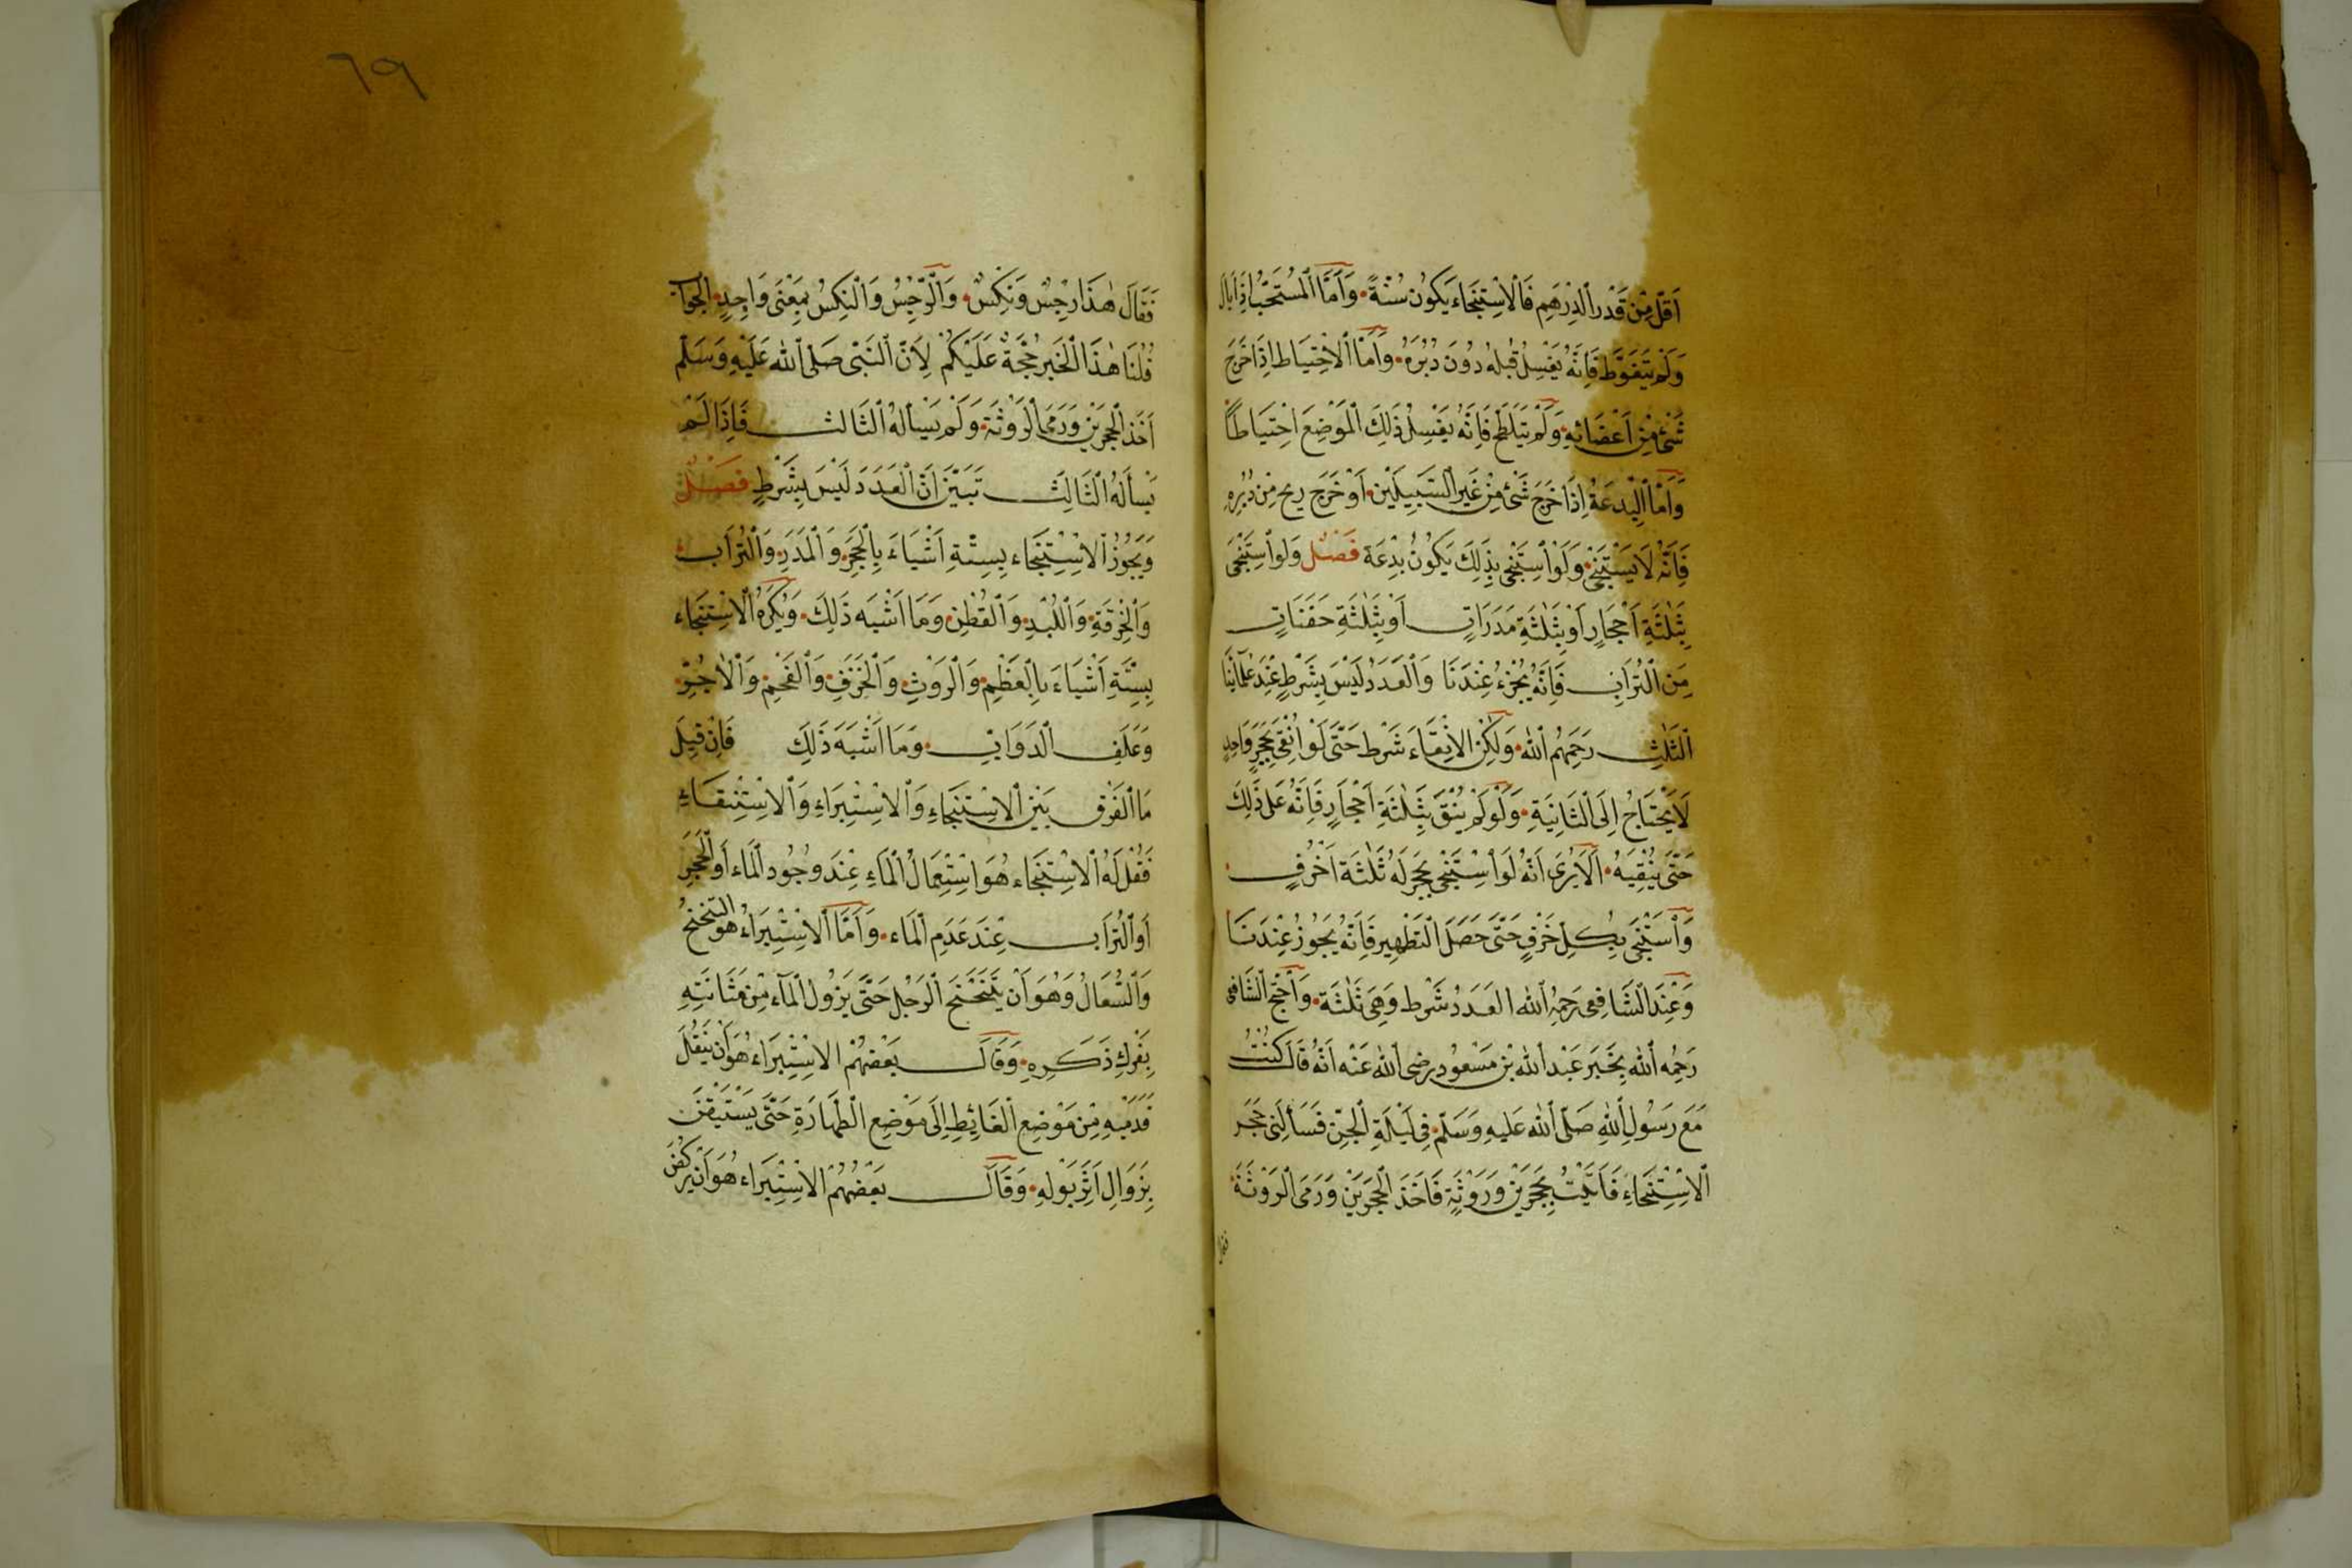 اَقَلَّ مِنْ قَدْرِ الدِّرْهَمِ فَالْاِسْتِنْجَاء يَكُونُ سُنَّةً وَاَمَّا الْمُسْتَحَبُّ اِذَا بَالَ
وَلَمْ يَتَغَوَّطْ فَاِنَّهُ يَغْسِلُ قُبُلَهُ دُونَ دُبُرِهِ وَاَمَّا الْاِحْتِيَاط اِذَا خَرَجَ
شَئٌ مِنْ اَعْضَائِهِ وَلَمْ يَتَلَطَّخْ فَاِنَّهُ يَغْسِلُ ذَلِكَ الْمَوْضِعَ احْتِيَاطًا
وَاَمَّا الْبِدْعَةُ اِذَا خَرَجَ شَئٌ مِنْ غَيْرِ السَّبِيلَيْنِ اَوْ خَرَجَ رِيح مِنْ دُبُرِهِ
فَاِنَّهُ لَا يَسْتَنْجِي وَلَوْ اسْتَنْجَى بِذَلِكَ يَكُونُ بِدْعَة فَصْل وَلَوِ اسْتَنْجَى
بِثَلٰثَةِ اَحْجَارٍ اَوْ بِثَلٰثَةِ مَدَرَاتٍ اَوْ بِثَلٰثَةِ حَفَنَاتٍ
مِنَ التُّرَابِ فَاِنَّهُ يُجْزِءُ عِنْدَنَا وَالْعَدَدُ لَيْسَ بِشَرْطٍ عِنْدَ عُلَمَائِنَا
الثَّلٰثِ رَحِمَهُمُ اللّٰهُ وَلٰكِنِ الْاِنْقَاءَ شَرْط حَتَّى لَوْ اَنْقَى بِحَجَرٍ وَاحِدٍ
لَا يَحْتَاجُ اِلَى الثَّانِيَةِ وَلَوْ لَمْ يُنْقَ بِثَلٰثَةِ اَحْجَارٍ فَاِنَّهُ عَلَى ذَلِكَ
حَتَّى يُنْقِيَهُ اَلَا يُرَى اَنَّهُ لَوِ اسْتَنْجَى بِحَجَرٍ لَهُ ثَلٰثَة اَحْرُفٍ
وَاسْتَنْجَى بِكُلِّ حَرْفٍ حَتَّى حَصَلَ التَّطْهِير فَاِنَّهُ يَجُوزُ عِنْدَنَا
وَعِنْدَ الشَّافِعِى رَحِمَهُ اللّٰه العَدَدُ شَرْط وَهِىَ ثَلٰثَة وَاحْتَجَّ الشَّافِعِى
رَحِمَهُ اللّٰه بِخَبَرِ عَبْدِ اللّٰه بْنِ مَسْعُودٍ رَضِىَ اللّٰه عَنْه اَنَّهُ قَالَ كُنْتُ
مَعَ رَسُولِ اللّٰهِ صَلَّى اللّٰه عَلَيهِ وَسَلَّمَ فِى لَيْلَةِ الْجِنِّ فَسَأَلَنِى حَجَر
الْاِسْتِنْجَاءِ فَاَتَيْتُ بِحَجَرَيْنِ وَرَوْثَةٍ فَاَخَذَ الْحَجَرَيْنِ وَرَمَى الرَّوْثَةَ
فقال
٦٩
فَقَالَ هٰذَا رِجْسٌ وَنِكْسٌ وَالرِّجْسُ وَالنِّكْسُ بِمَعْنَى وَاحِدٍ الجواب
قُلْنَا هٰذَا الْخَبَر حُجَّةٌ عَلَيْكُمْ لِاَنَّ النَّبِى صَلَّى اللّٰه عَلَيْهِ وَسَلَّم
اَخَذَ الْحَجَرَيْنِ وَرَمَى الرَّوْثَةَ وَلَمْ يَسْأَلْهُ الثَّالث فَاِذَا لَمْ
يَسْأَلْهُ الثَّالِثَ تَبَيَّنَ اَنَّ الْعَدَدَ لَيْسَ بِشَرْطٍ فَصْل
وَيَجُوزُ الْاِسْتِنْجَاء بِسِتَّةِ اَشْيَاءَ بِالْحَجَرِ وَالْمَدَرِ وَالتُّرَابِ
وَالْخِرْقَةِ وَاللُّبْدِ وَالْقُطْنِ وَمَا اَشْبَه ذَلِكَ وَيُكْرَهُ الْاِسْتِنْجَاء
بِسِتَّةِ اَشْيَاءَ بِالْعَظْمِ وَالرَّوْثِ وَالْخَزَفِ وَالْفَحْمِ وَالْاٰجُرِّ
وَعَلَفِ الدَّوَابِّ وَمَا اَشْبَهَ ذَلِكَ فَاِنْ قِيلَ
مَا الْفَرْق بَيْنَ الْاِسْتِنْجَاءِ وَالْاِسْتِبْرَاءِ وَالْاِسْتِنْقَاءِ
فَقُلْ لَهُ الْاِسْتِنْجَاء هُوَ اسْتِعْمَالُ الْمَاءِ عِنْدَ وُجُودِ الْمَاء اَوِ الْحَجَرِ
اَوِ التُّرَابِ عِنْدَ عَدَمِ الْمَاء وَاَمَّا الْاِسْتِبْرَاءُ هُوَ التَّنَحْنُحُ
وَالسُّعَالُ وَهُوَ اَنْ يَتَنَحْنَحَ الرَّجُل حَتَّى يَزُولَ الْمَاء مِنْ مَثَانَتِهِ
بِفَرْكِ ذَكَرِهِ وَقَالَ بَعْضُهُمْ الاسْتِبْرَاءُ هُوَ اَنْ يَنْقُلَ
قَدَمَيْهِ مِنْ مَوْضِعِ الْغَائِطِ اِلَى مَوْضِعِ الطَّهَارَةِ حَتَّى يَسْتَيْقِنَ
بِزَوَالِ اَثَرِ بَوْلِهِ وَقَالَ بَعْضُهُمْ الاسْتِبْرَاء هُوَ اَنْ يركض